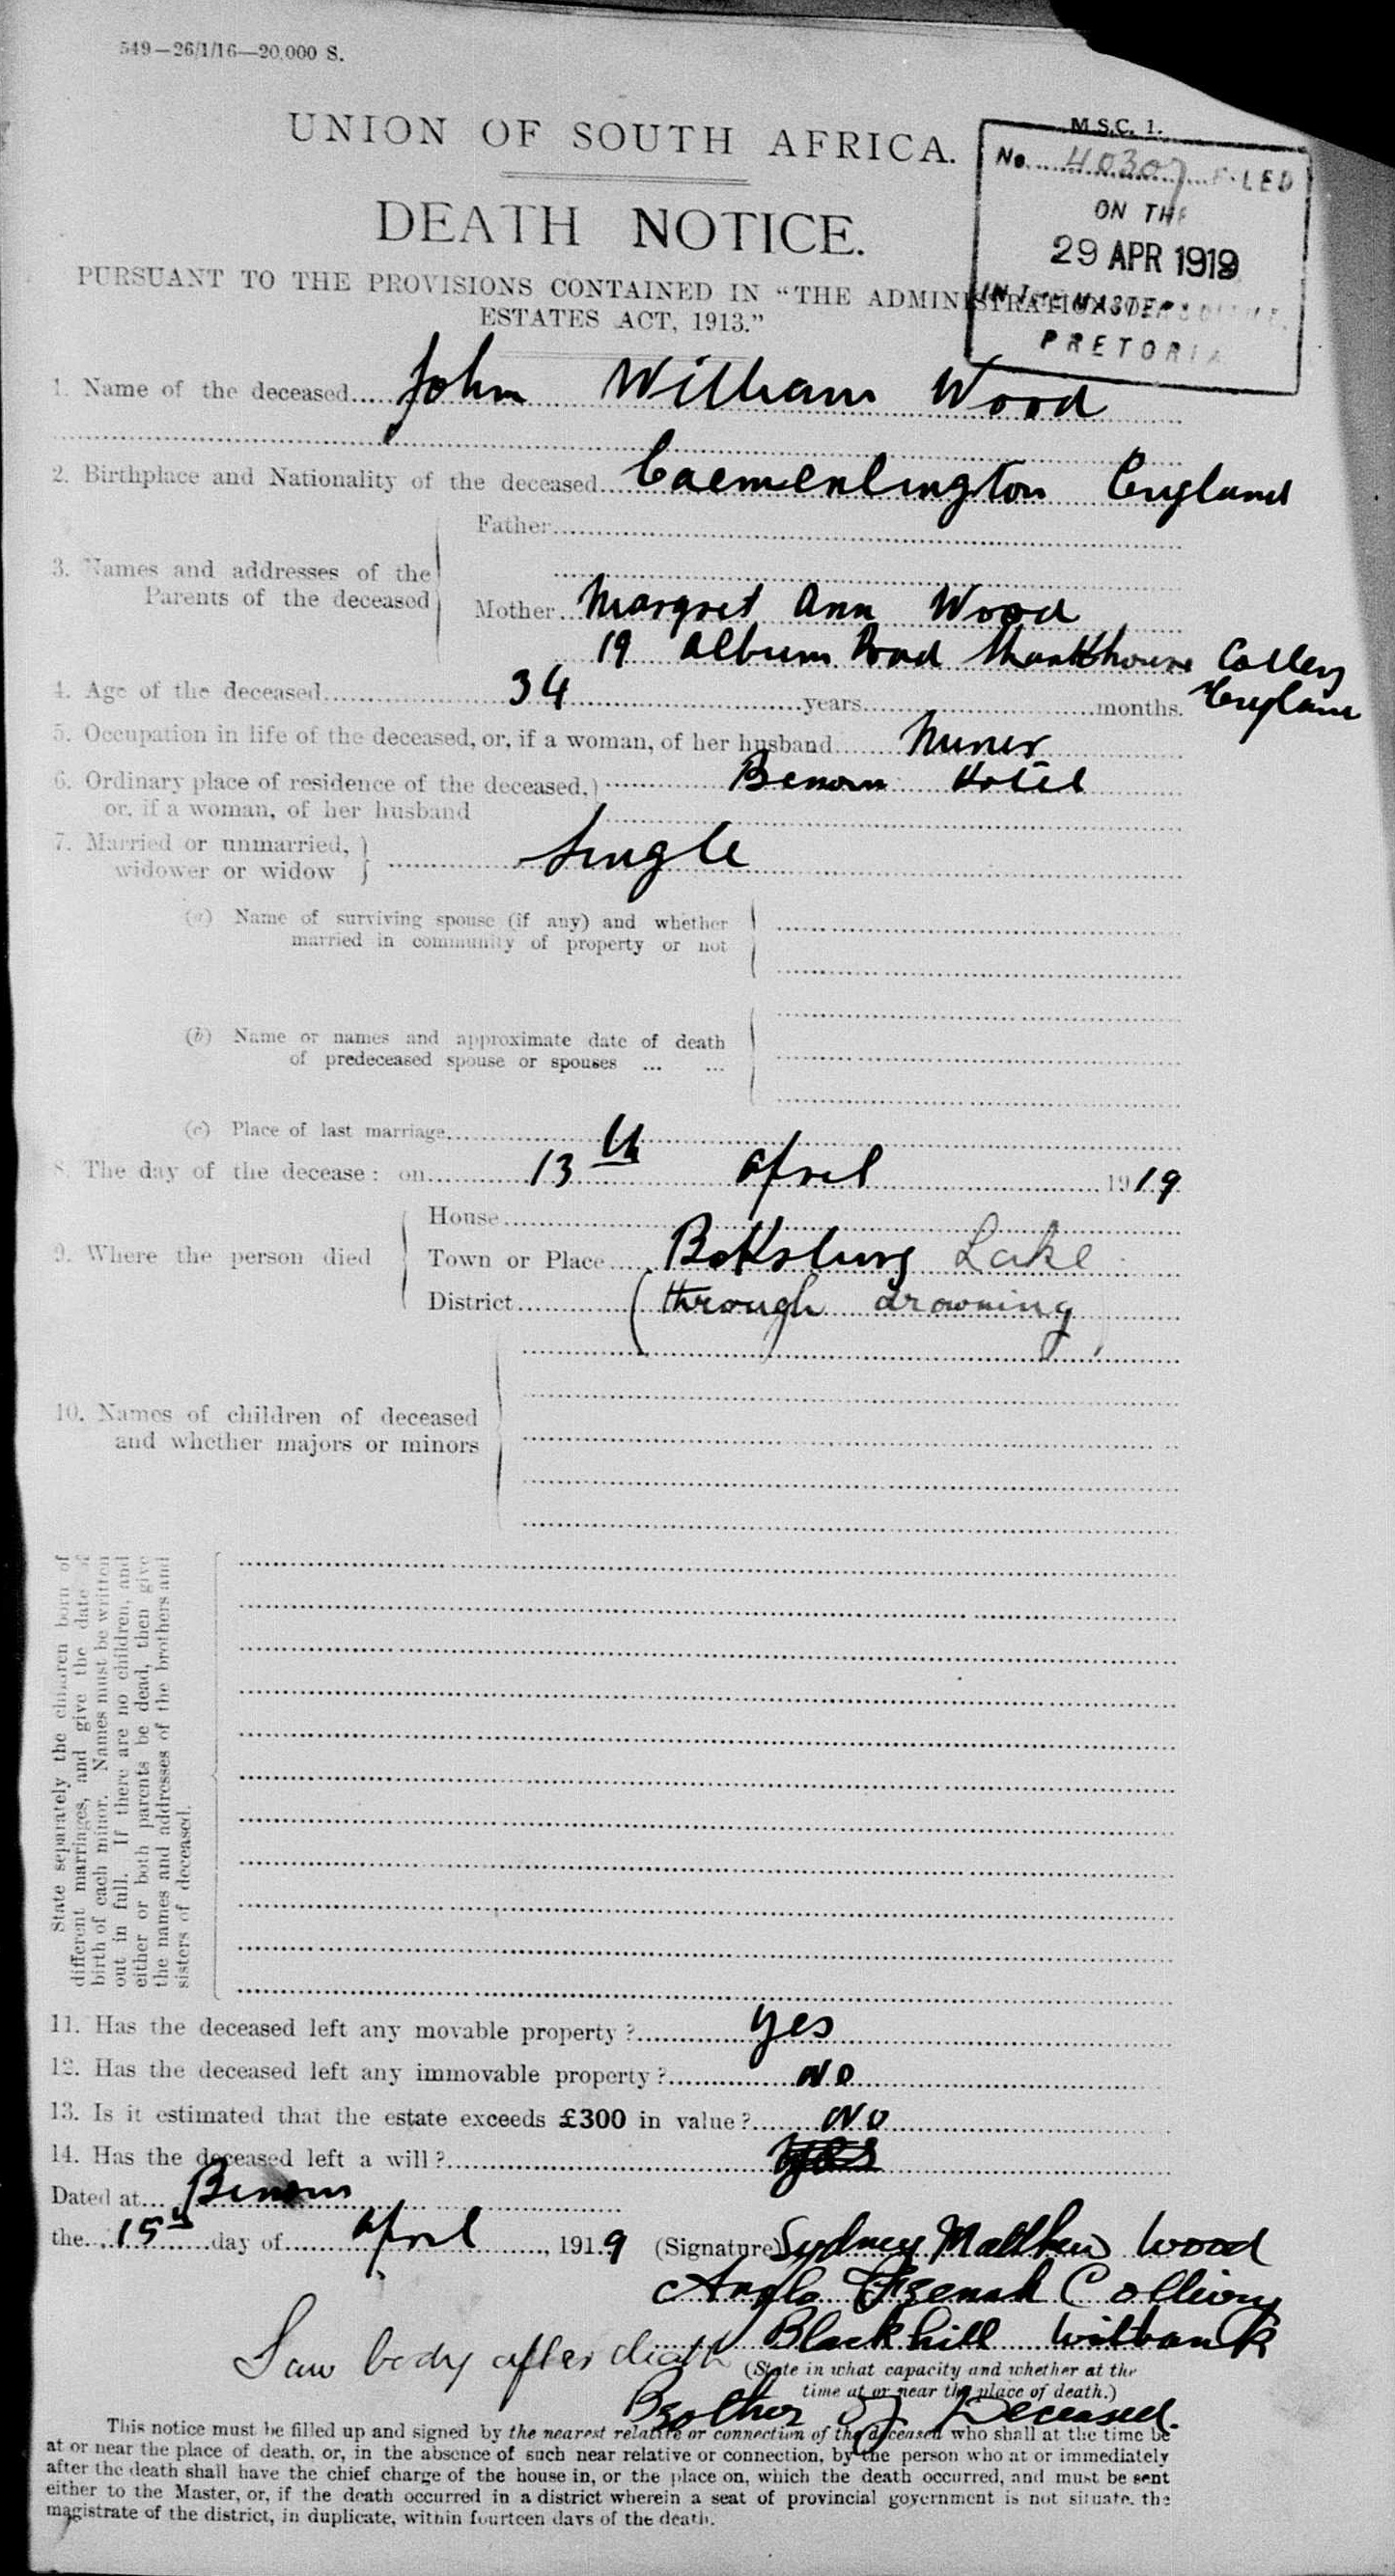 549—26/1/16—20,000 S.
M.S.C. 1.
UNION OF SOUTH AFRICA.
No. 40307 FILED
ON THE
29 APR 1919
IN THE MASTER'S OFFICE
PRETORIA
DEATH NOTICE.
PURSUANT TO THE PROVISIONS CONTAINED IN “THE ADMINISTRATION OF
ESTATES ACT, 1913.”
1. Name of the deceased John William Wood
2. Birthplace and Nationality of the deceased Caemenlington England
3. Names and addresses of the Parents of the deceased
Father
Mother Margret Ann Wood
19 Album Road Shankhouse Collery
England
4. Age of the deceased 34 years months.
5. Occupation in life of the deceased, or, if a woman, of her husband Miner
6. Ordinary place of residence of the deceased, Benoni Hotel
or, if a woman, of her husband
7. Married or unmarried,
widower or widow Single
(a) Name of surviving spouse (if any) and whether
married in community of property or not
(b) Name or names and approximate date of death
of predeceased spouse or spouses ... ...
(c) Place of last marriage
8. The day of the decease: on 13th April 1919
9. Where the person died
House
Town or Place Boksburg Lake
District (through drowning)
10. Names of children of deceased
and whether majors or minors
State separately the children born of
different marriages, and give the date of
birth of each minor. Names must be written
out in full. If there are no children, and
either or both parents be dead, then give
the names and addresses of the brothers and
sisters of deceased.
11. Has the deceased left any movable property? yes
12. Has the deceased left any immovable property? No
13. Is it estimated that the estate exceeds £300 in value? No
14. Has the deceased left a will? yes
Dated at Benoni
the 15th day of April, 1919 (Signature) Sydney Matthew Wood
Anglo Colliery
Blackhill Witbank
Saw body after death
(State in what capacity and whether at the
time at or near the place of death.)
Brother of Deceased.
This notice must be filled up and signed by the nearest relative or connection of the deceased who shall at the time be
at or near the place of death, or, in the absence of such near relative or connection, by the person who at or immediately
after the death shall have the chief charge of the house in, or the place on, which the death occurred, and must be sent
either to the Master, or, if the death occurred in a district wherein a seat of provincial government is not situate, the
magistrate of the district, in duplicate, within fourteen days of the death.